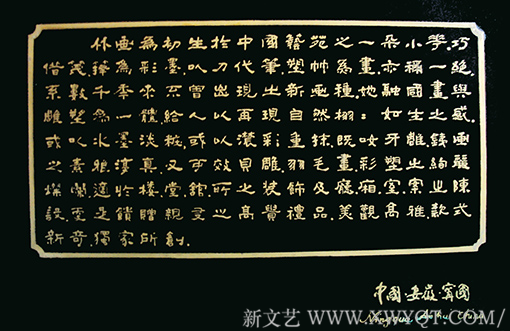 竹画為初生於中國藝苑之一朵小 巧
為彩墨.以刀代筆塑 種畫.亦稱一絕.
系數千年來不曾出現新 她融國畫與
雕塑為一體.給人以再現自然 栩栩如生之感.
或以水墨淡粧.或以濃彩 抹.既如牙雕
之素雅淳真.又可效貝雕羽毛畫 塑
璨爛.適於樓堂館所之裝飾及 室 陳
設.至足饋贈親 之高 禮品.美觀高雅.款式
新奇.獨家所創.
中國·安徽·寧國
Ningguo Anhui China
新文艺 WWW.XWYQT.COM/